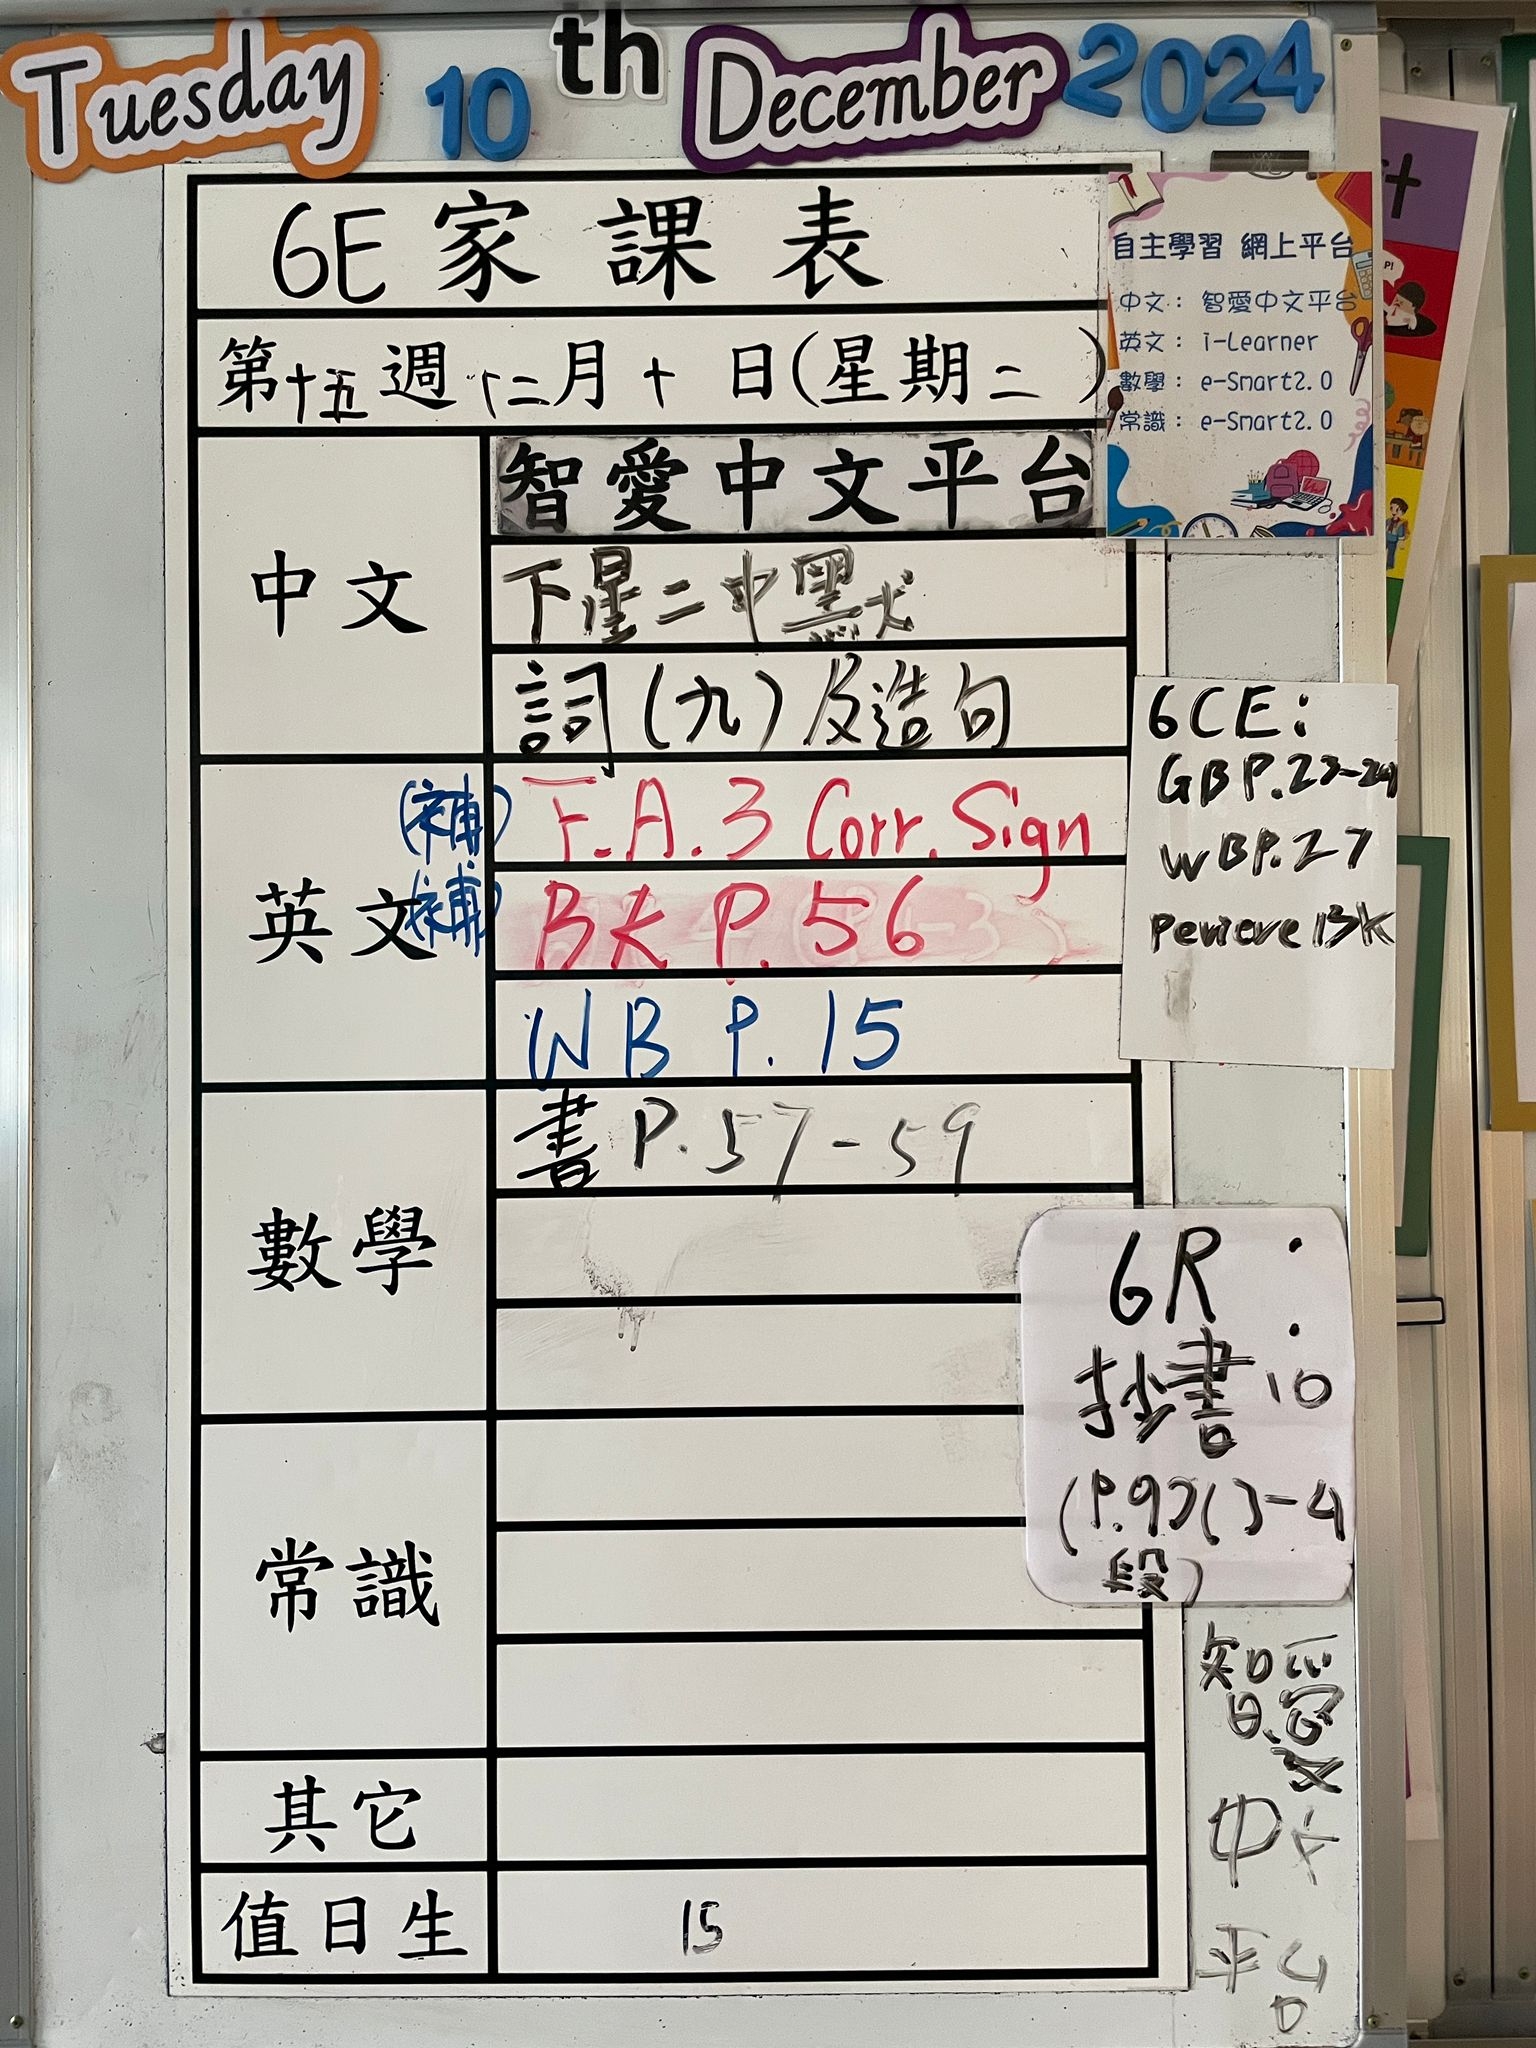 Tuesday 10th December 2024
6E家課表
第十五週十二月十日(星期二)
自主學習 網上平台
中文： 智愛中文平台
英文： i-Learner
數學： e-Smart2.0
常識： e-Smart2.0
中文
智愛中文平台
下星二中默
詞(九)及造句
英文
(補) F.A.3 Corr. Sign
(補) BK P.56
WB P.15
6CE:
GB P.23-24
WB P.27
BK
數學
書 P.57-59
6R:
抄書10
(P.97(3-4
段)
常識
其它
值日生
15
智愛
中文
平台